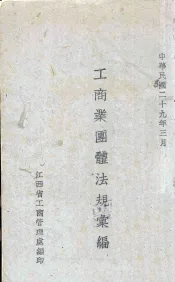 中華民國二十九年三月
工商業團體法規彙編
江西省工商管理處編印